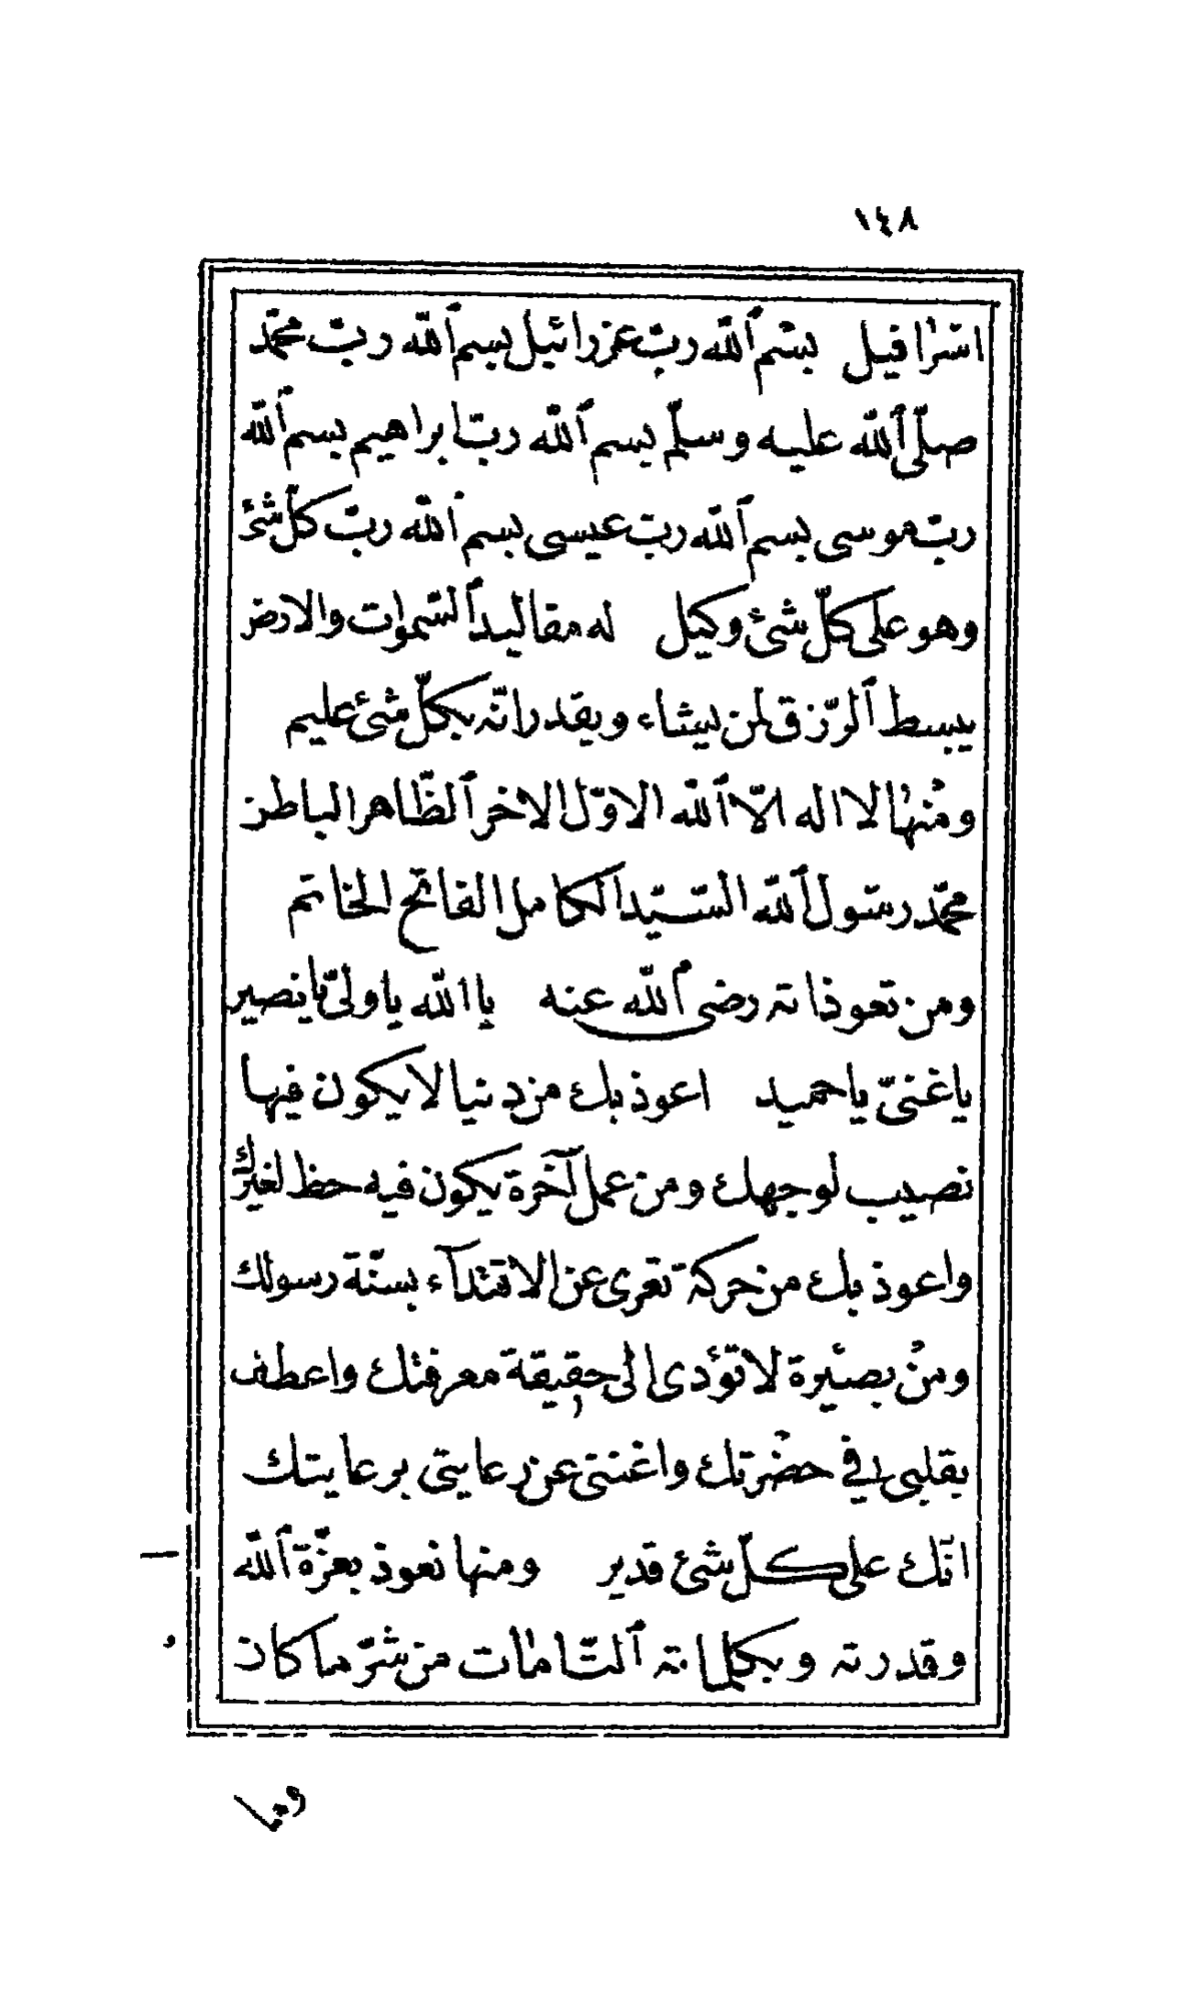 ١٤٨
اسرافيل بسم الله ربّ عزرائيل بسم الله ربّ محمّد
صلّى الله عليه وسلّم بسم الله ربّ ابراهيم بسم الله
ربّ موسى بسم الله ربّ عيسى بسم الله ربّ كلّ شئ
وهو على كلّ شئ وكيل له مقاليد السّموات والارض
يبسط الرّزق لمن يشاء ويقدر انّه بكلّ شئ عليم
ومنها لا اله الّا الله الاوّل الاخر الظّاهر الباطن
محمّد رسول الله السّيّد الكامل الفاتح الخاتم
ومن تعوذاته رضى الله عنه يا الله يا ولىّ يا نصير
يا غنىّ يا حميد اعوذ بك من دنيا لا يكون فيها
نصيب لوجهك ومن عمل آخرة يكون فيه حظ لغيرك
واعوذ بك من حركة تعرى عن الاقتدآء بسنّة رسولك
ومن بصيرة لا تؤدى الى حقيقة معرفتك واعطف
بقلبى فى حضرتك واغننى عن رعايتى برعايتك
انّك على كلّ شئ قدير ومنها نعوذ بعزّة الله
وقدرته وبكلماته التّامات من شرّ ما كان